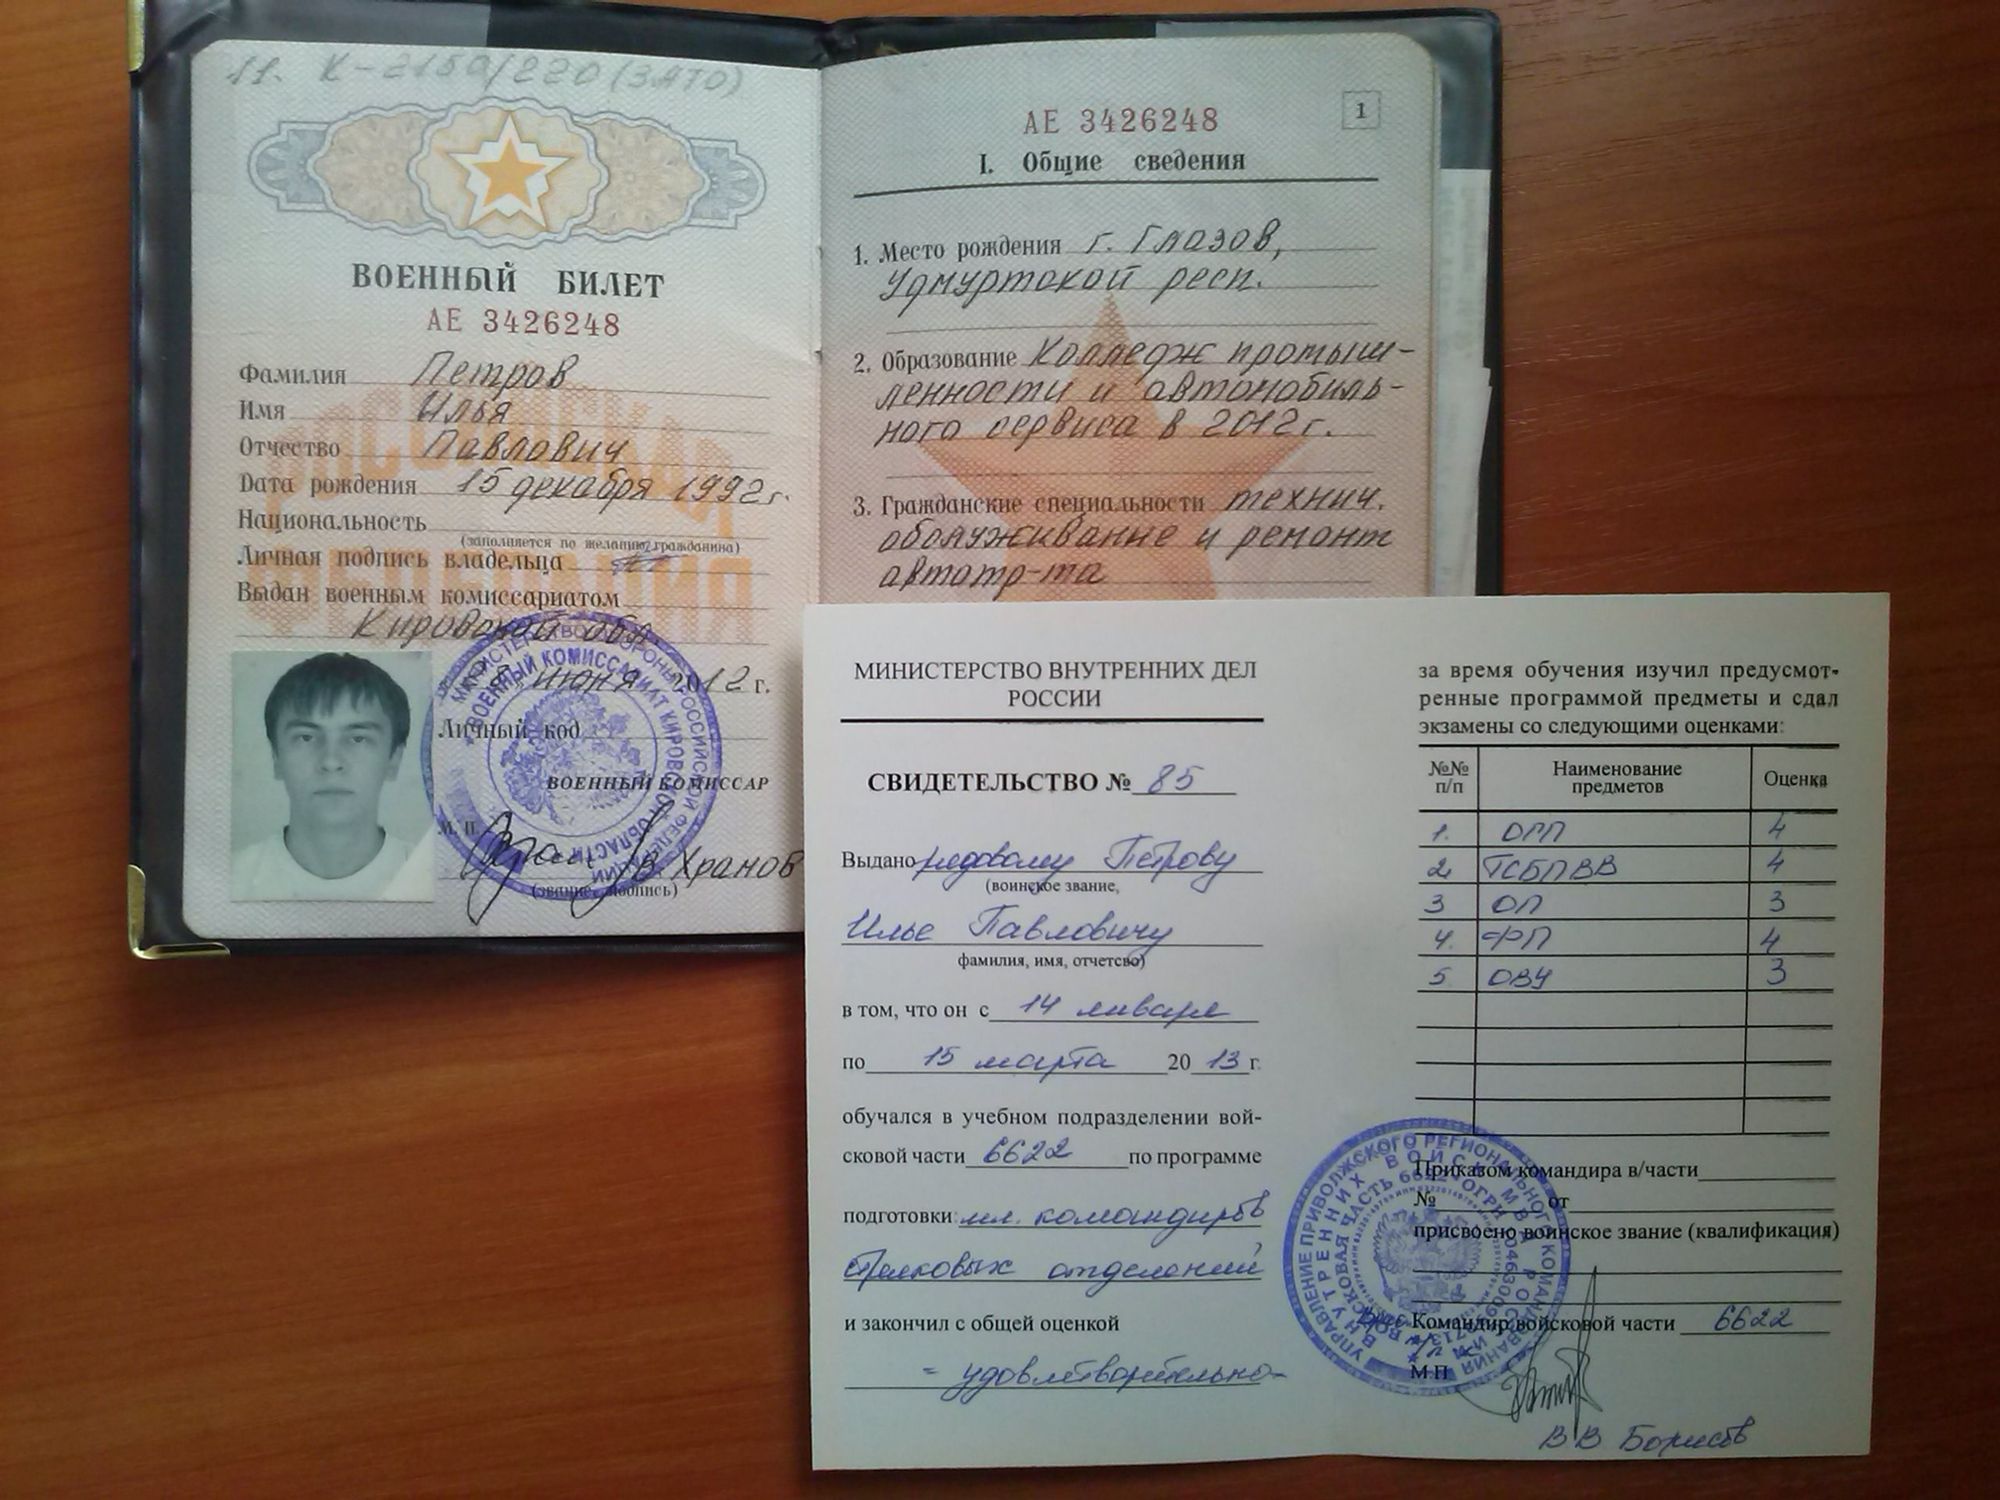 11. К-2150/220 (ЗАТО)
ВОЕННЫЙ БИЛЕТ
АЕ 3426248
Фамилия Петров
Имя Илья
Отчество Павлович
Дата рождения 15 декабря 1992г.
Национальность
(заполняется по желанию гражданина)
Личная подпись владельца
Выдан военным комиссариатом
Кировской обл
июня 2012 г.
Личный код
ВОЕННЫЙ КОМИССАР
М. П.
В Хранов
(звание, подпись)
1
АЕ 3426248
I. Общие сведения
1. Место рождения г. Глазов,
Удмуртской респ.
2. Образование Колледж промыш-
ленности и автомобиль-
ного сервиса в 2012г.
3. Гражданские специальности технич.
обслуживание и ремонт
автотр-та
МИНИСТЕРСТВО ВНУТРЕННИХ ДЕЛ
РОССИИ
СВИДЕТЕЛЬСТВО № 85
Выдано рядовому Петрову
(воинское звание,
Илье Павловичу
фамилия, имя, отчетсво)
в том, что он с 14 января
по 15 марта 20 13 г.
обучался в учебном подразделении вой-
сковой части 6622 по программе
подготовки: мл. командиров
стрелковых отделений
и закончил с общей оценкой
- удовлетворительно -
за время обучения изучил предусмот-
ренные программой предметы и сдал
экзамены со следующими оценками:
№№ п/п Наименование предметов Оценка
1. ОГП 4
2. ТСБПВВ 4
3 ОП 3
4. ФП 4
5 ОВУ 3
Приказом командира в/части
№ от
присвоено воинское звание (квалификация)
Командир войсковой части 6622
М П
В В Борисов